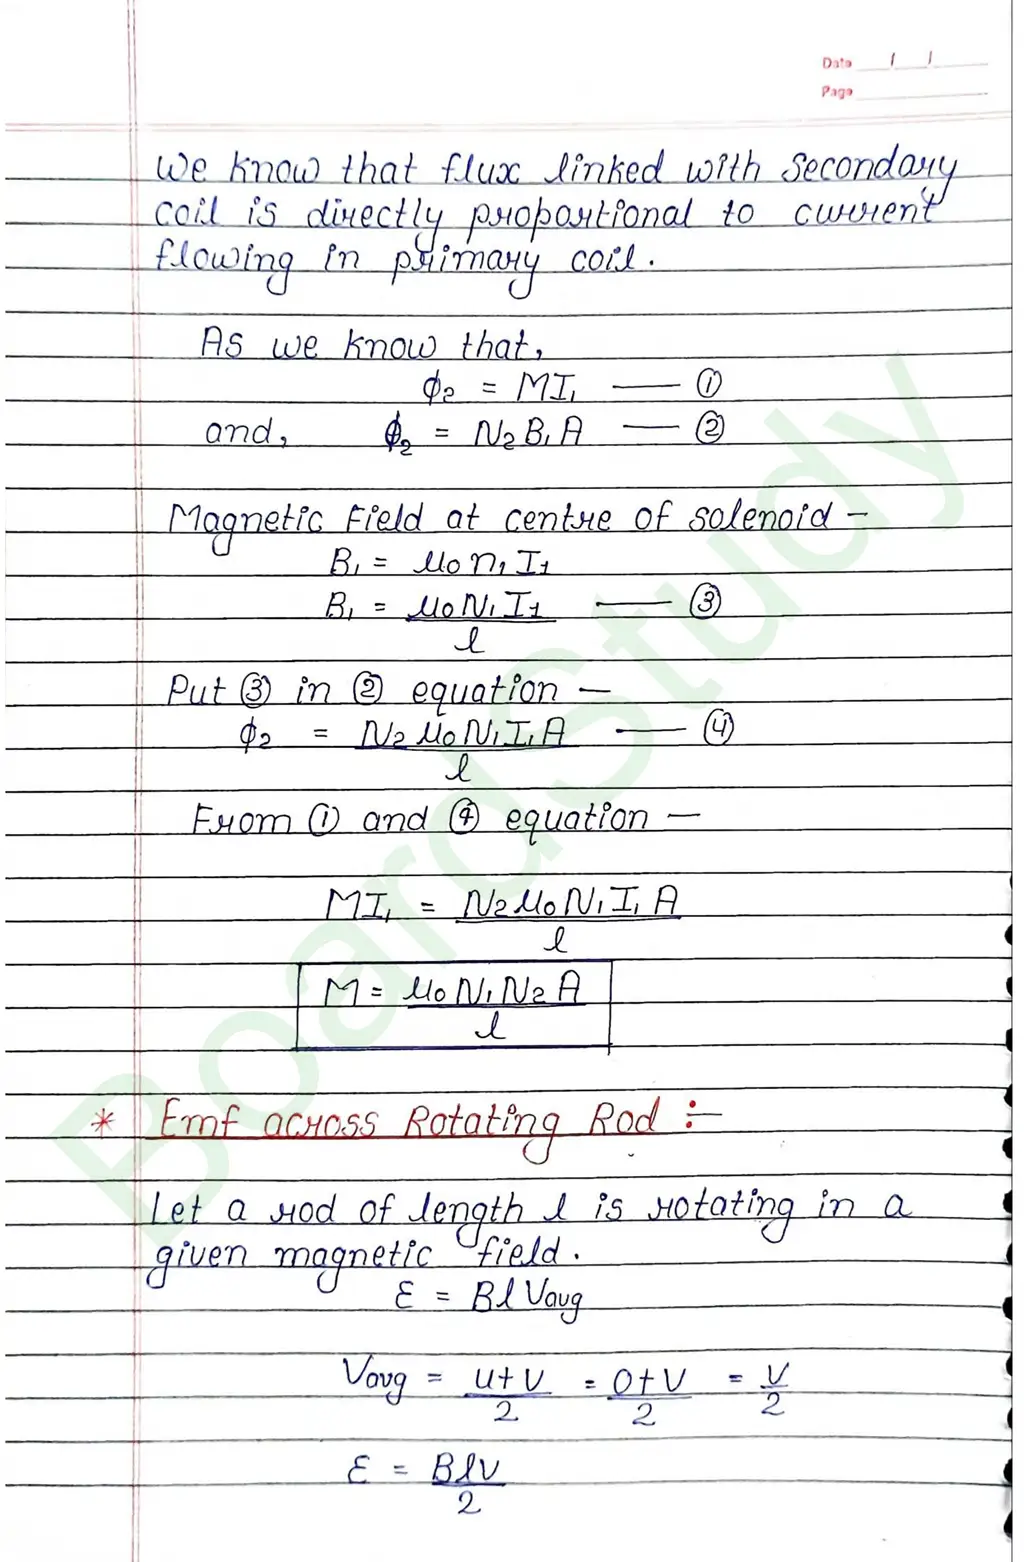 Date / /
Page
We know that flux linked with secondary
coil is directly proportional to current
flowing in primary coil.
As we know that,
ϕ₂ = MI₁ —— ①
and, ϕ₂ = N₂B₁A —— ②
Magnetic Field at centre of solenoid -
B₁ = μ₀n₁I₁
B₁ = μ₀N₁I₁ —— ③
l
Put ③ in ② equation -
ϕ₂ = N₂μ₀N₁I₁A —— ④
l
From ① and ④ equation -
MI₁ = N₂μ₀N₁I₁A
l
M = μ₀N₁N₂A
l
* Emf across Rotating Rod :-
Let a rod of length l is rotating in a
given magnetic field.
ε = BlVavg
Vavg = u+v = 0+V = V
2 2 2
ε = Blv
2
BoardStudy